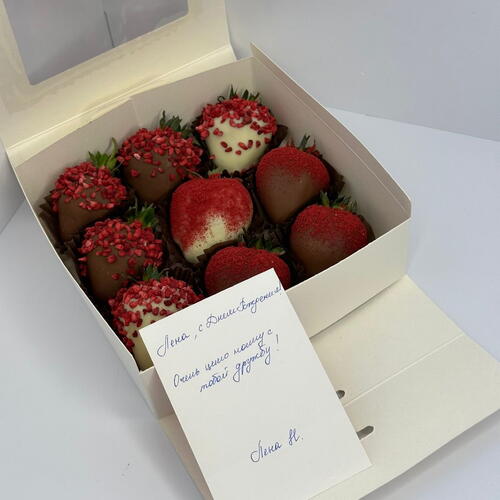 Лена, с Днем Рождения!
Очень ценю нашу с
тобой дружбу!
Лена Н.